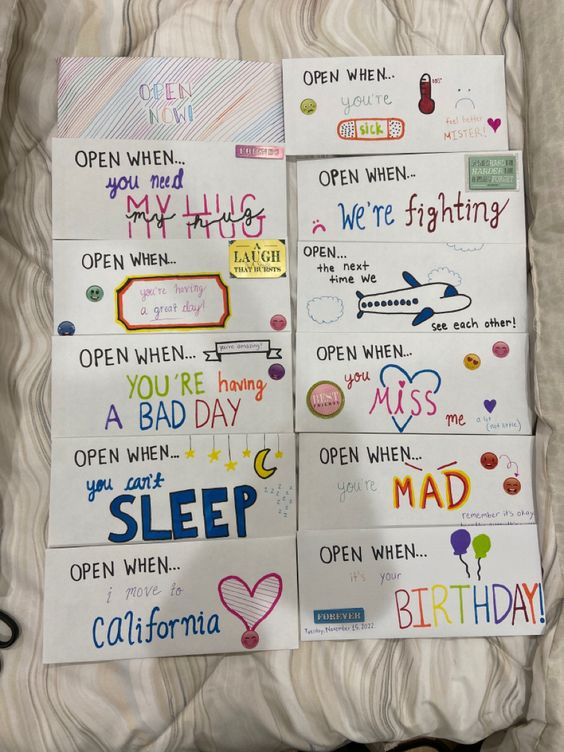 OPEN
NOW!
OPEN WHEN...
you're
sick
feel better
MISTER!
OPEN WHEN...
you need
MY HUG
my hug
OPEN WHEN...
We're fighting
OPEN WHEN...
you're having
a great day!
A
LAUGH
THAT BURSTS
OPEN...
the next
time we
see each other!
OPEN WHEN...
you're amazing!
YOU'RE having
A BAD DAY
OPEN WHEN...
you
Miss
me a lot
(not little)
BEST
FRIENDS
OPEN WHEN...
you can't
SLEEP
zzz
OPEN WHEN...
you're MAD
remember it's okay
OPEN WHEN...
i move to
California
OPEN WHEN...
it's your
BIRTHDAY!
FOREVER
Tuesday, November 15, 2022